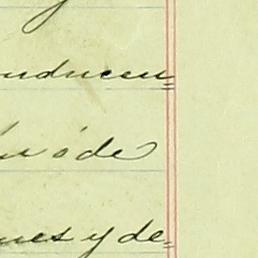 nducen=
ó de
nes y de=